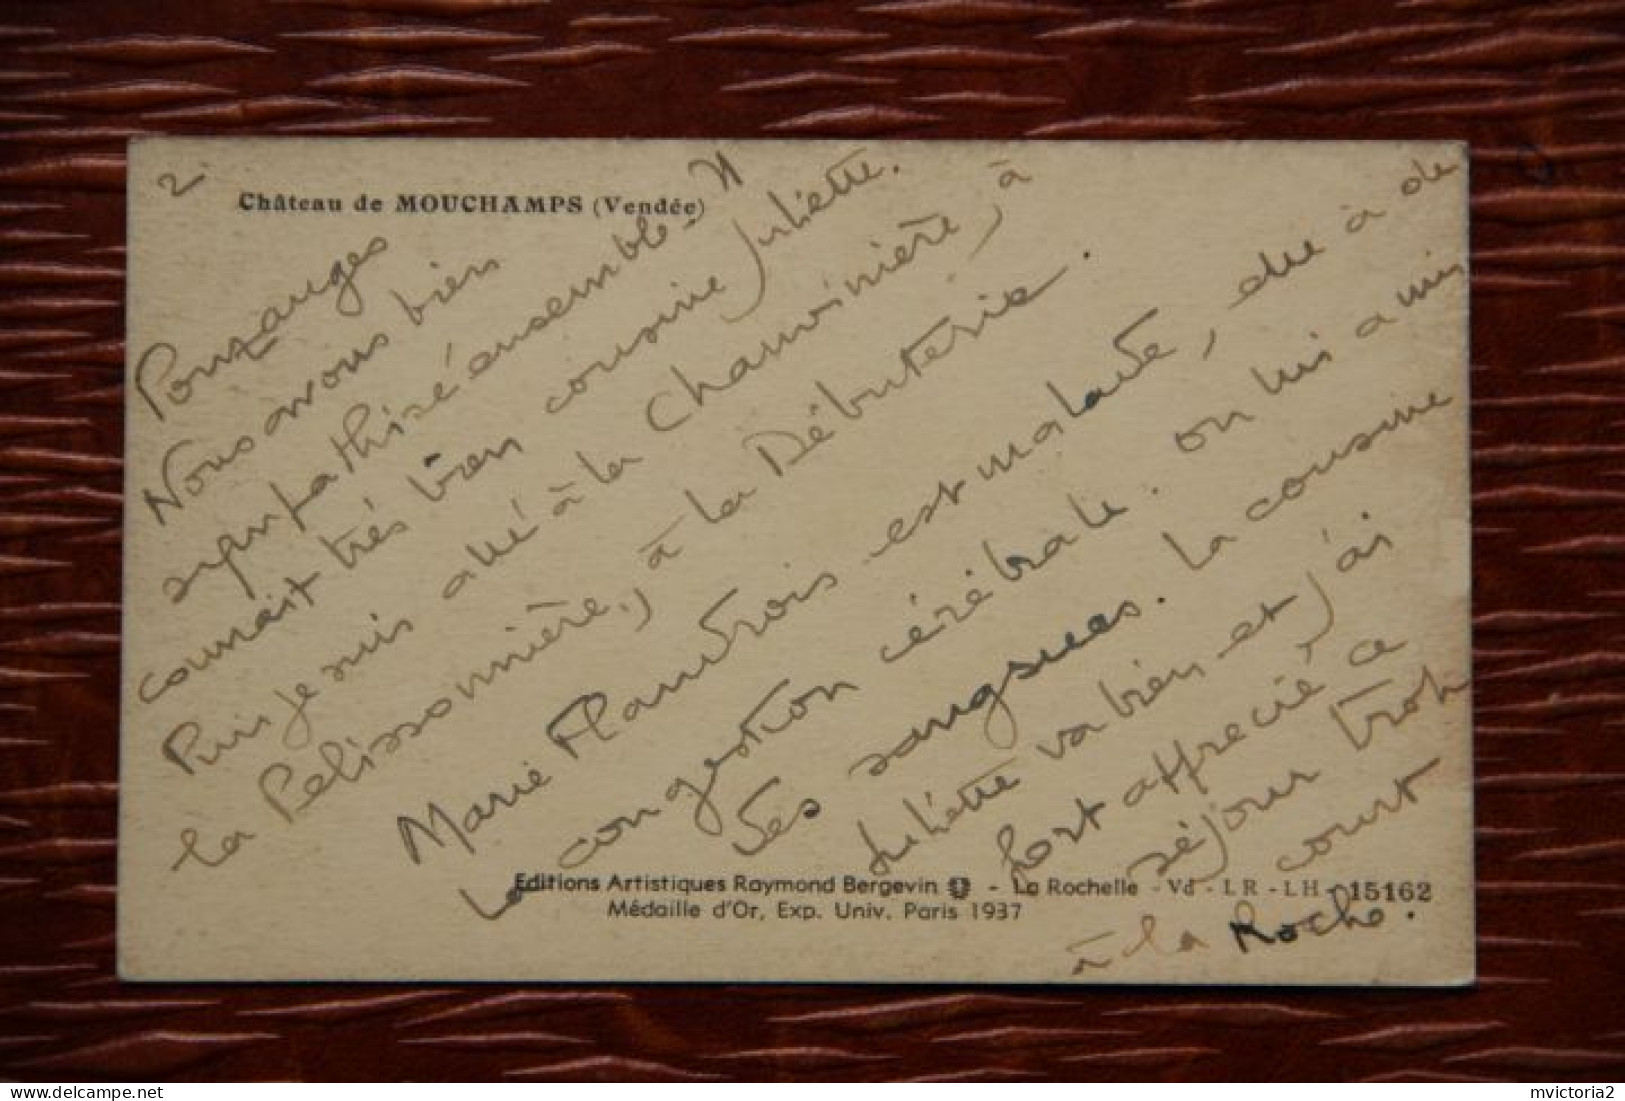 2
Château de MOUCHAMPS (Vendée)
Pouzauges
Nous avons bien
sympathisé ensemble. Il
connait très bien cousine Juliette.
Puis je suis allé à la Chauvinière, à
la Pelissonnière, à la Débuterie.
Marie Flandrois est malade, du à de
la congestion cérébrale. on lui a mis
des sangsues. la cousine
Juliette va bien et j'ai
fort apprecié ce
séjour trop
court
à la Roche.
Editions Artistiques Raymond Bergevin - La Rochelle - Vd - LR - LH - 15162
Médaille d'Or, Exp. Univ. Paris 1937
mvictoria2